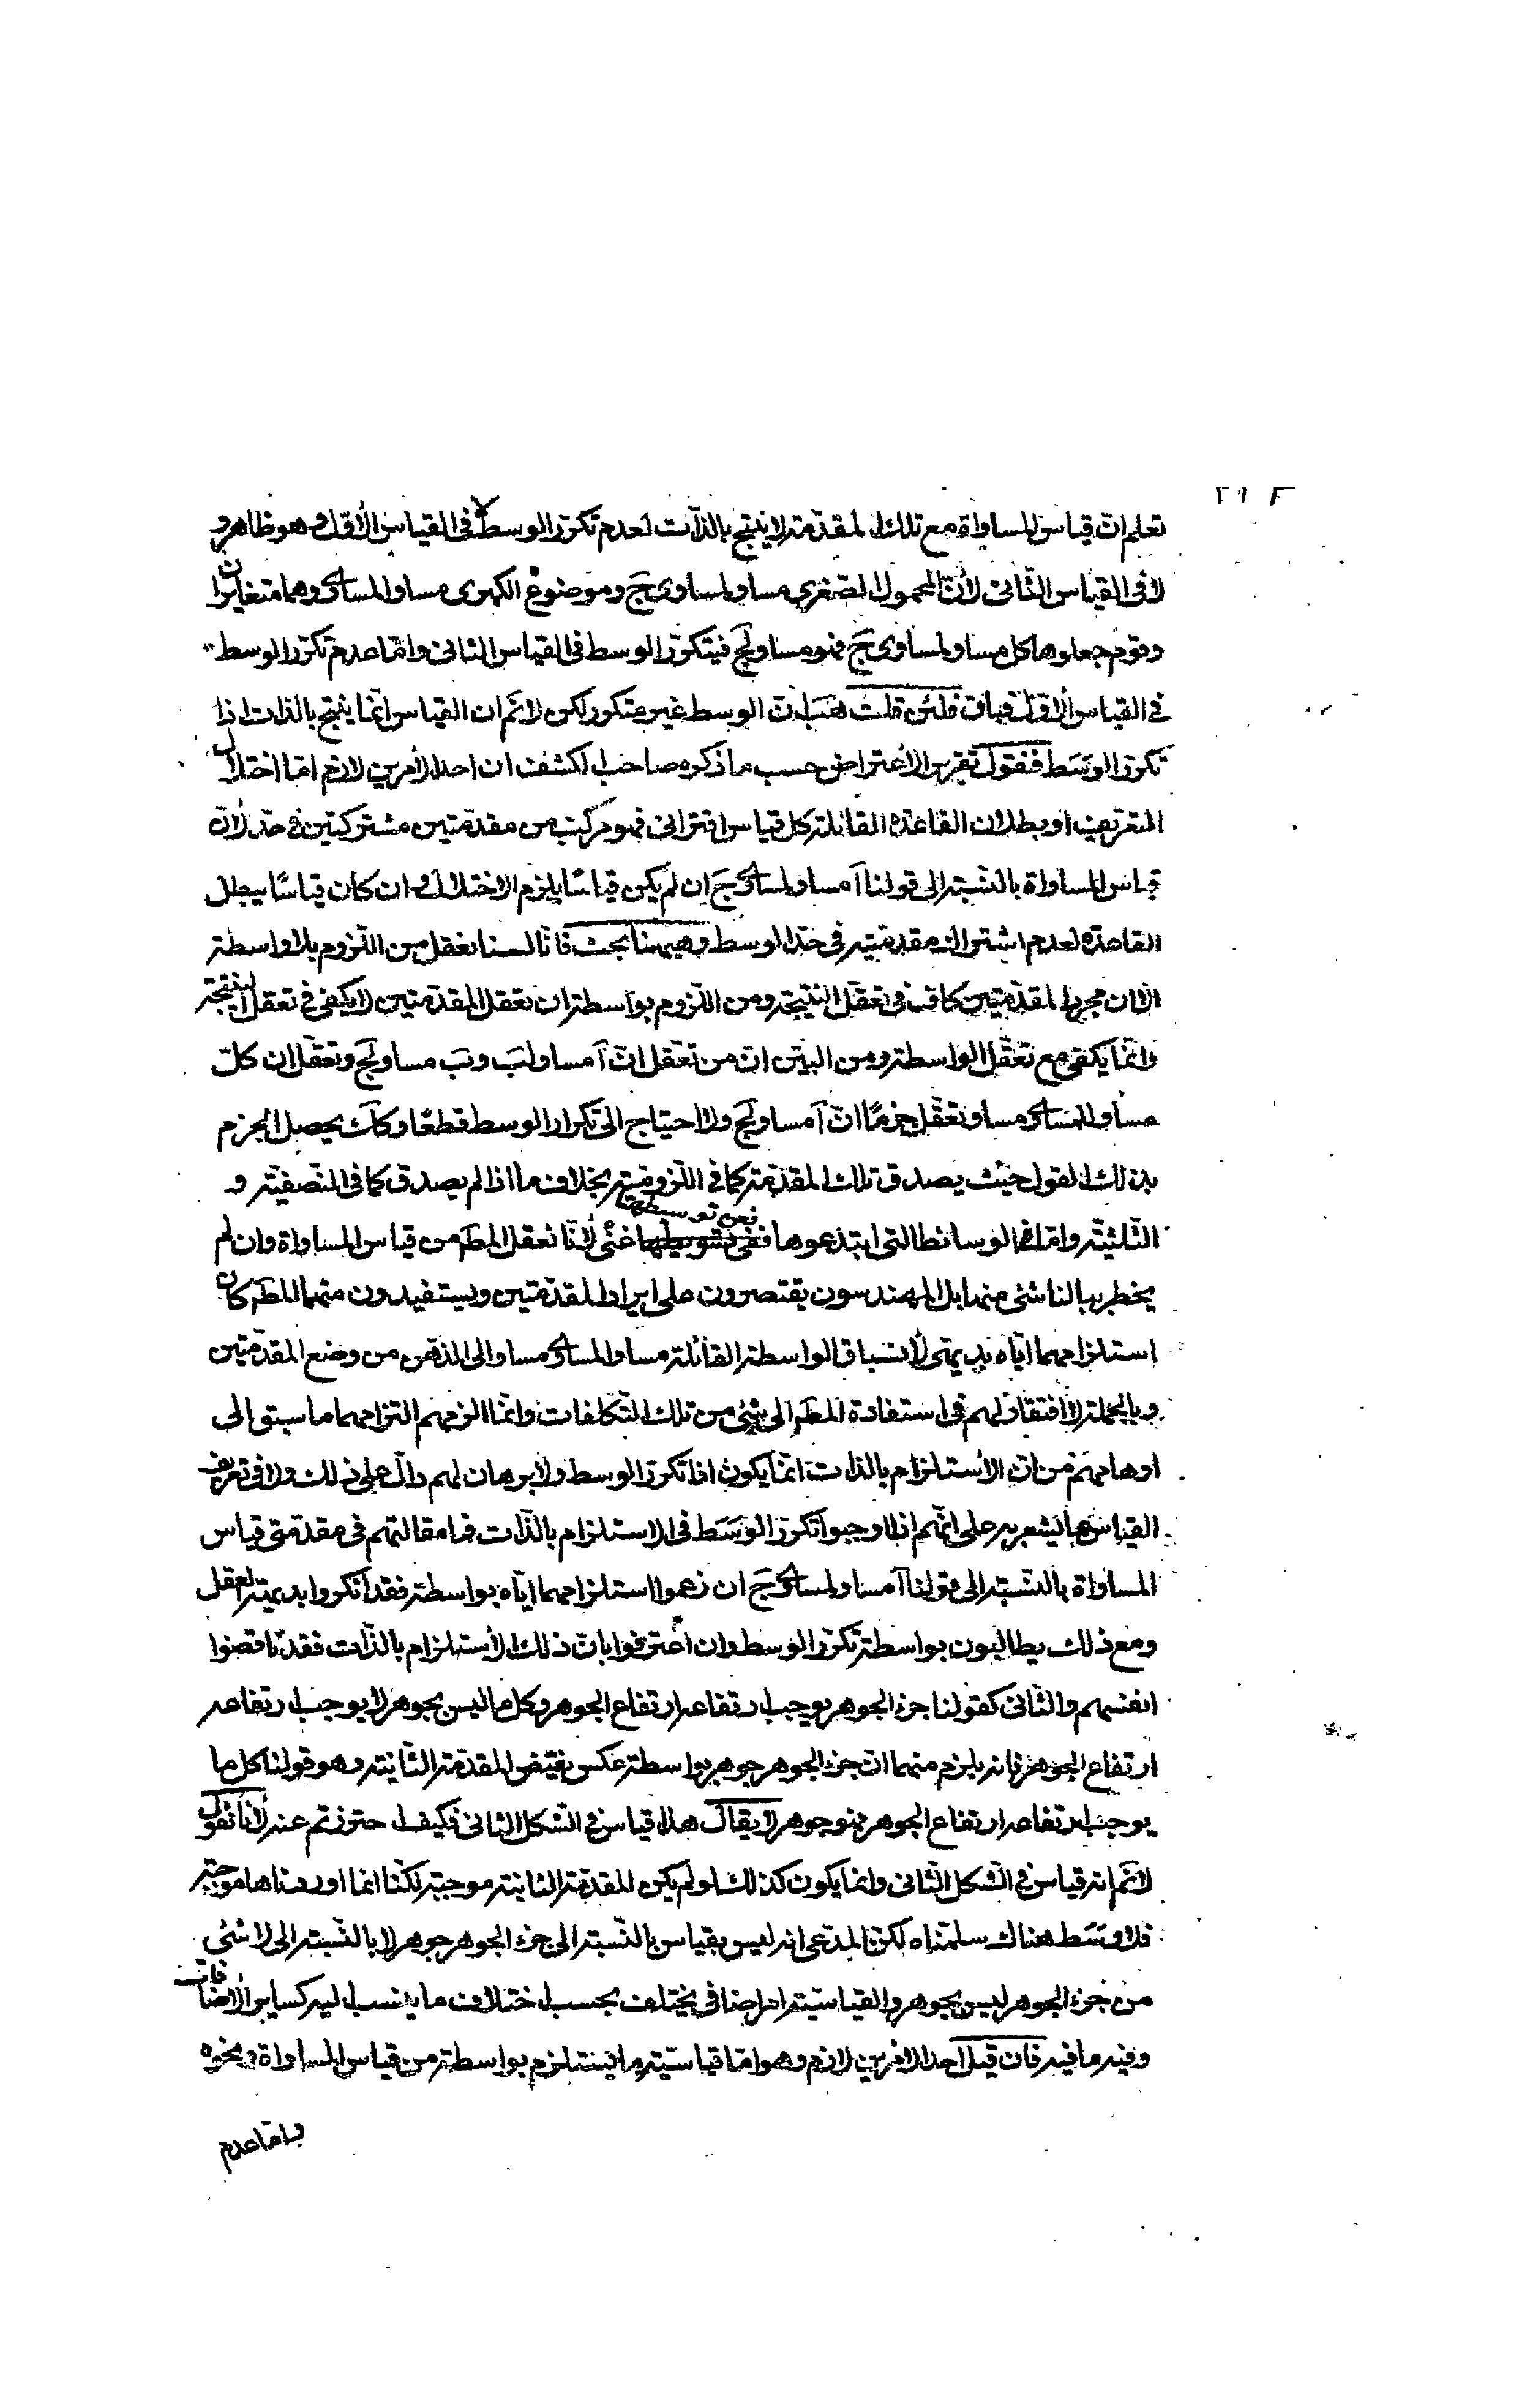 تعلم انّ قياس المساواة مع تلك المقدّمة لا ينتج بالذّات لعدم تكرّر الوسط لا فى القياس الأوّل وهو ظاهر و
لا فى القياس الثّانى لأنّ المحمول الصّغرى مساو لمساوى جَ وموضوع الكبرى مساو المساوى وهما متغايران
وقوم جعلوها كل مساو لمساوى جَ فهو مساو لجَ فيتكرّر الوسط فى القياس الثانى وامّا عدم تكرّر الوسط
فى القياس الأوّل فباق فلئن قلت هَبْ انّ الوسط غير متكرر لكن لا نَم ان القياس انّما ينتج بالذات اذا
تكرّر الوسَط فنقول تقرير الأعتراض حسب ما ذكره صاحب الكشف ان احد الأمرين لازم امّا اختلال
التعريف او بطلان القاعدة القائلة كل قياس اقترانى فهو مركّب من مقدمتين مشتركتين فى حدّ لأنّ
قياس المساواة بالنّسبة الى قولنا آ مساو لمساوى جَ ان لم يكن قياسًا يلزم الاختلال وان كان قياسًا يبطل
القاعدة لعدم اشتراك مقدمتيه فى حدّ الوسط وهيهنا بحث فانّا لسنا نعقل من اللّزوم بلا واسطة
الّا ان مجرد المقدّمتين كاف فى تعقّل النتيجة ومن اللّزوم بواسطة ان تعقل المقدّمتين لا يكفى فى تعقل النتيجة
وانّما يكفى مع تعقّل الواسطة ومن البيّن انّ من تعّقل انّ آ مساو لبَ وبَ مساو لجَ وتعقّل ان كلّ
مساو المساوى مساو تعقّل جزمًا انّ آ مساو لجَ ولا احتياج الى تكرار الوسط قطعًا وكك يحصل الجزم
بذلك القول حيث يصدق تلك المقدّمة كما فى اللّزوميّة بخلاف ما اذا لم يصدق كما فى النّصفيّة و
الثّلثيّة وامّا الوسائط التى ابتدعوها فنحن توسيطها غنىّ لأنّا نعقل المط من قياس المساواة وان لم
يخطر ببالنا شئ منها بل المهندسون يقتصرون على ايراد المقدّمتين ويستفيدون منهما المط كان
استلزامهما ايّاه بديهىّ لأنسباق الواسطة القائلة مساو المساوى مساو الى الذهن من وضع المقدّمتين
وبالجملة لا افتقار لهم فى استفادة المط الى شئ من تلك التّكلفات وانّما الزمهم التزامها ما سبق الى
اوهامهم من انّ الأستلزام بالذات انّما يكون اذا تكرّر الوسط ولا برهان لهم دالّ على ذلك ولا فى تعريف
القياس ما يشعر به على انّهم اذا اوجبوا تكرّر الوسَط فى الاستلزام بالذّات فما مقالتهم فى مقدّمتى قياس
المساواة بالنّسبة الى قولنا آ مساو لمساوى جَ ان زعموا استلزامهما ايّاه بواسطة فقد انكروا بديهيّة العقل
ومع ذلك يطالبون بواسطة تكرّر الوسط وان اعترفوا بانّ ذلك الأستلزام بالذّات فقد ناقضوا
انفسهم والثّانى كقولنا جزء الجوهر يوجب ارتفاعه ارتفاع الجوهر وكل ما ليس بجوهر لا يوجب ارتفاعه
ارتفاع الجوهر فانه يلزم منهما انّ جزء الجوهر جوهر بواسطة عكس نقيض المقدّمة الثّانية وهو قولنا كل ما
يوجب ارتفاعه ارتفاع الجوهر فهو جوهر لا يقال هذا قياس فى الشّكل الثانى فكيف احترزتم عنه لأنا نقول
لا نَم انه قياس فى الشّكل الثّانى وانما يكون كذلك لو لم يكن المقدّمة الثانية موجبة لكنّا انما اوردناها موجبة
فلا وسَط هناك سلّمناه لكن المدّعى انه ليس بقياس بالنّسبة الى جزء الجوهر جوهر لا بالنّسبة الى لا شئ
من جزء الجوهر ليس بجوهر والقياسيّة امر اضافى يختلف بحسب اختلاف ما ينسب اليه كساير الأضافات
وفيه ما فيه فان قيل احد الأمرين لازم وهو امّا قياسيّة ما يستلزم بواسطة من قياس المساواة ونحوه
وامّا عدم